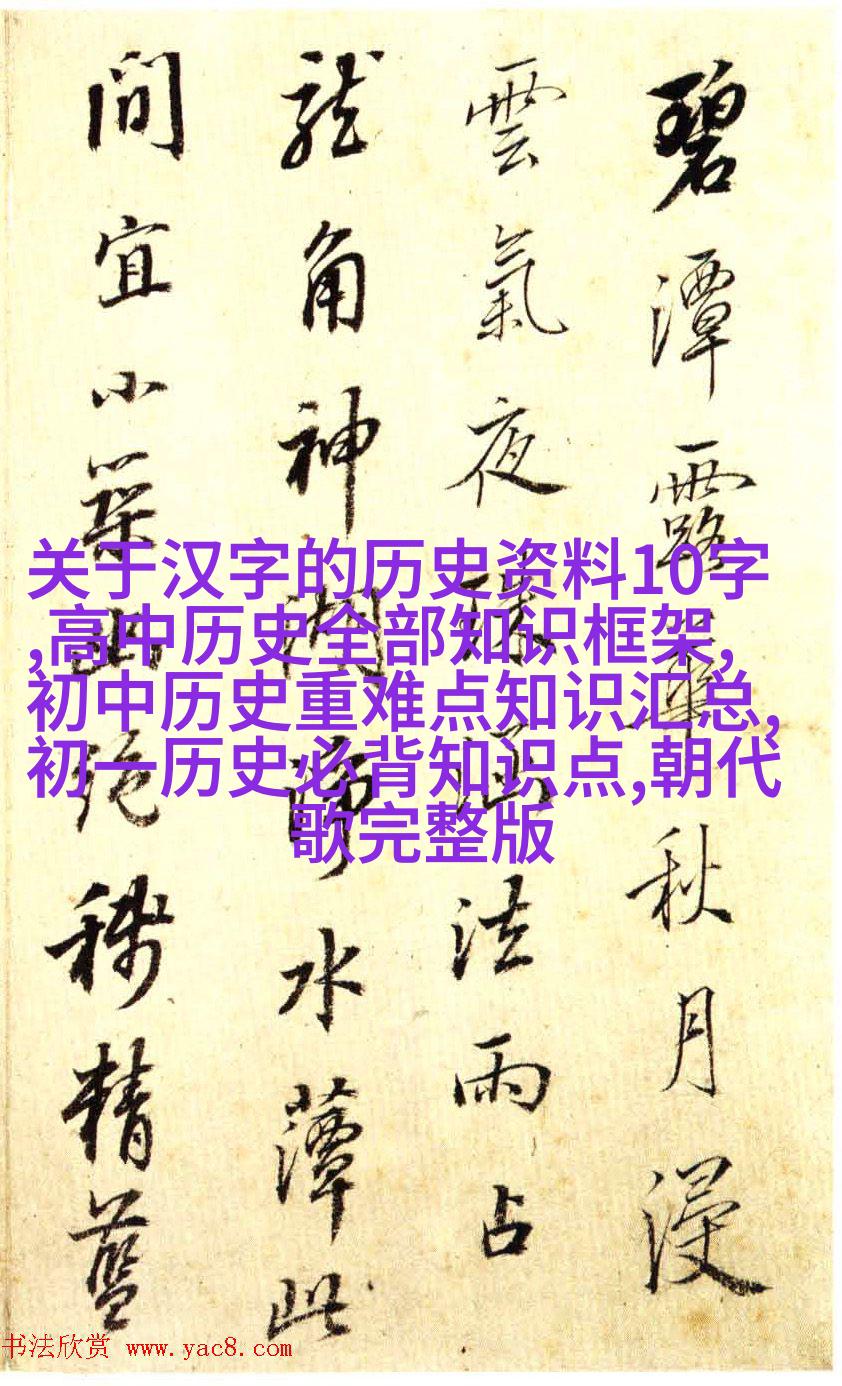 碧潭露華秋月浸
雲氣夜珠涵法雨占
龍角神水此
間宜小築絕精藍
关于汉字的历史资料10字
,高中历史全部知识框架,
初中历史重难点知识汇总,
初一历史必背知识点,朝代
歌完整版
书法欣赏 www.yac8.com